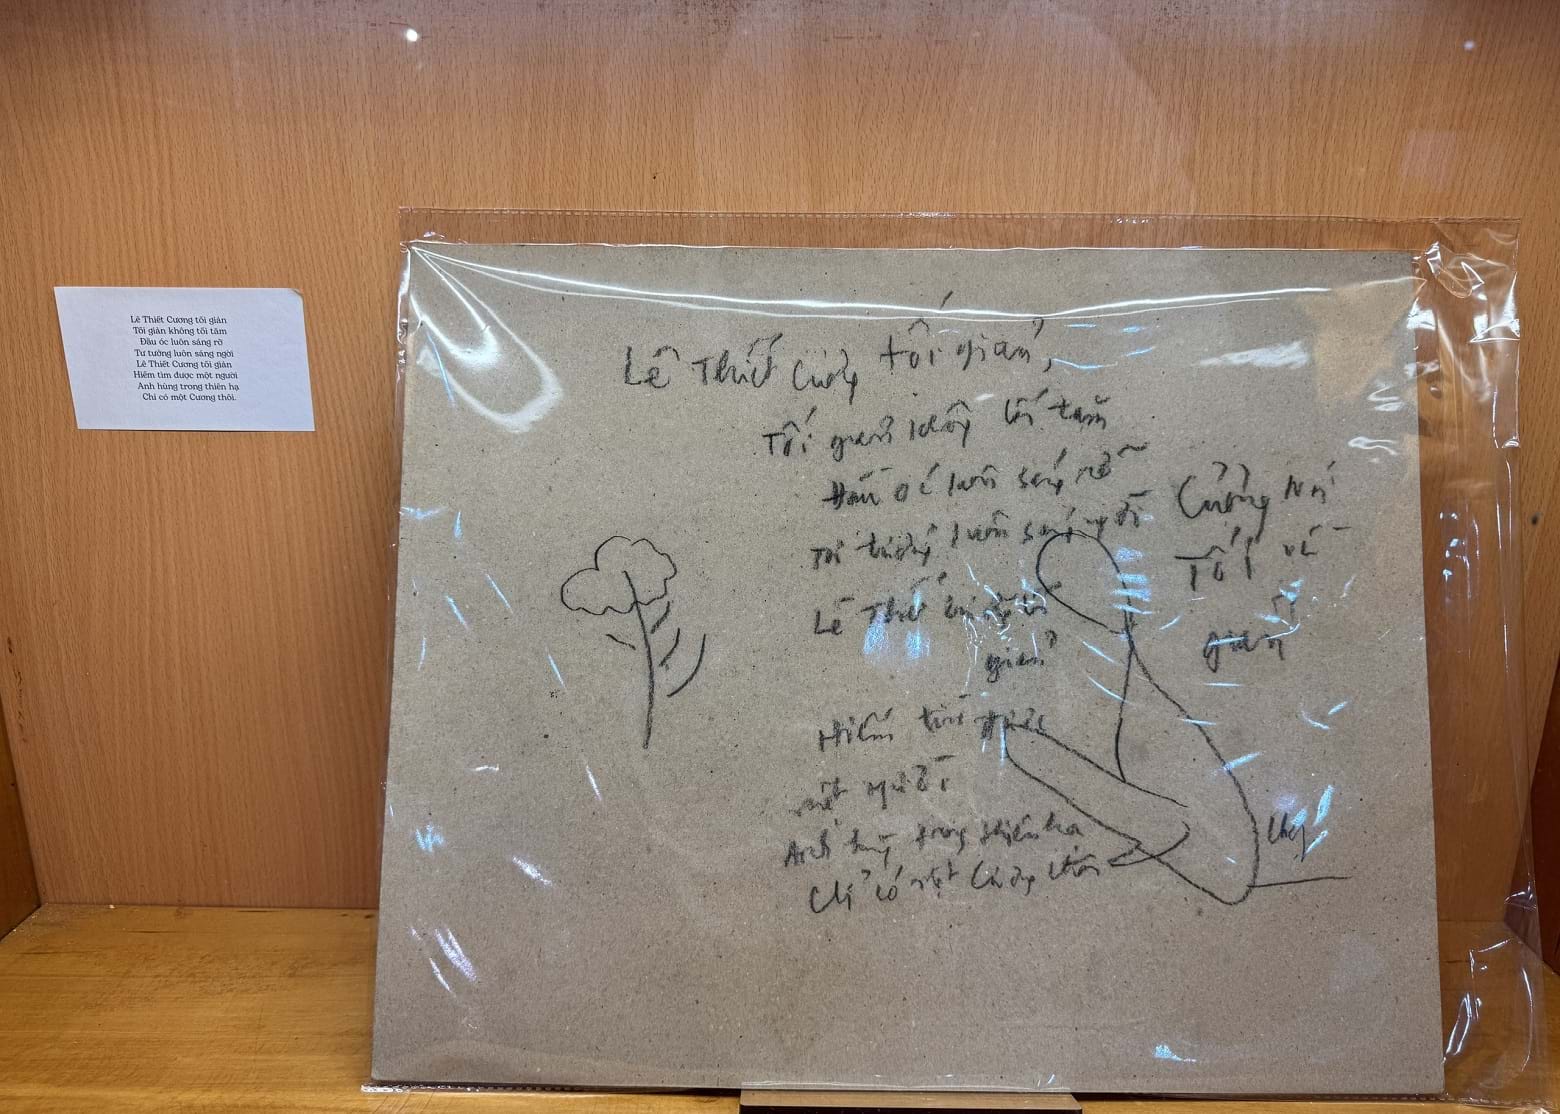 Lê Thiết Cương tối giản
Tối giản không tối tăm
Đầu óc luôn sáng rỡ
Tư tưởng luôn sáng ngời
Lê Thiết Cương tối giản
Hiếm tìm được một người
Anh hùng trong thiên hạ
Chỉ có một Cương thôi.
Lê Thiết Cương tối giản,
Tối giản không tối tăm
Đầu óc luôn sáng rỡ
tư tưởng luôn sáng ngời
Lê Thiết Cương tối
giản
Hiếm tìm được
một người
Anh hùng trong thiên hạ
Chỉ có một Cương thôi
Tối
giản